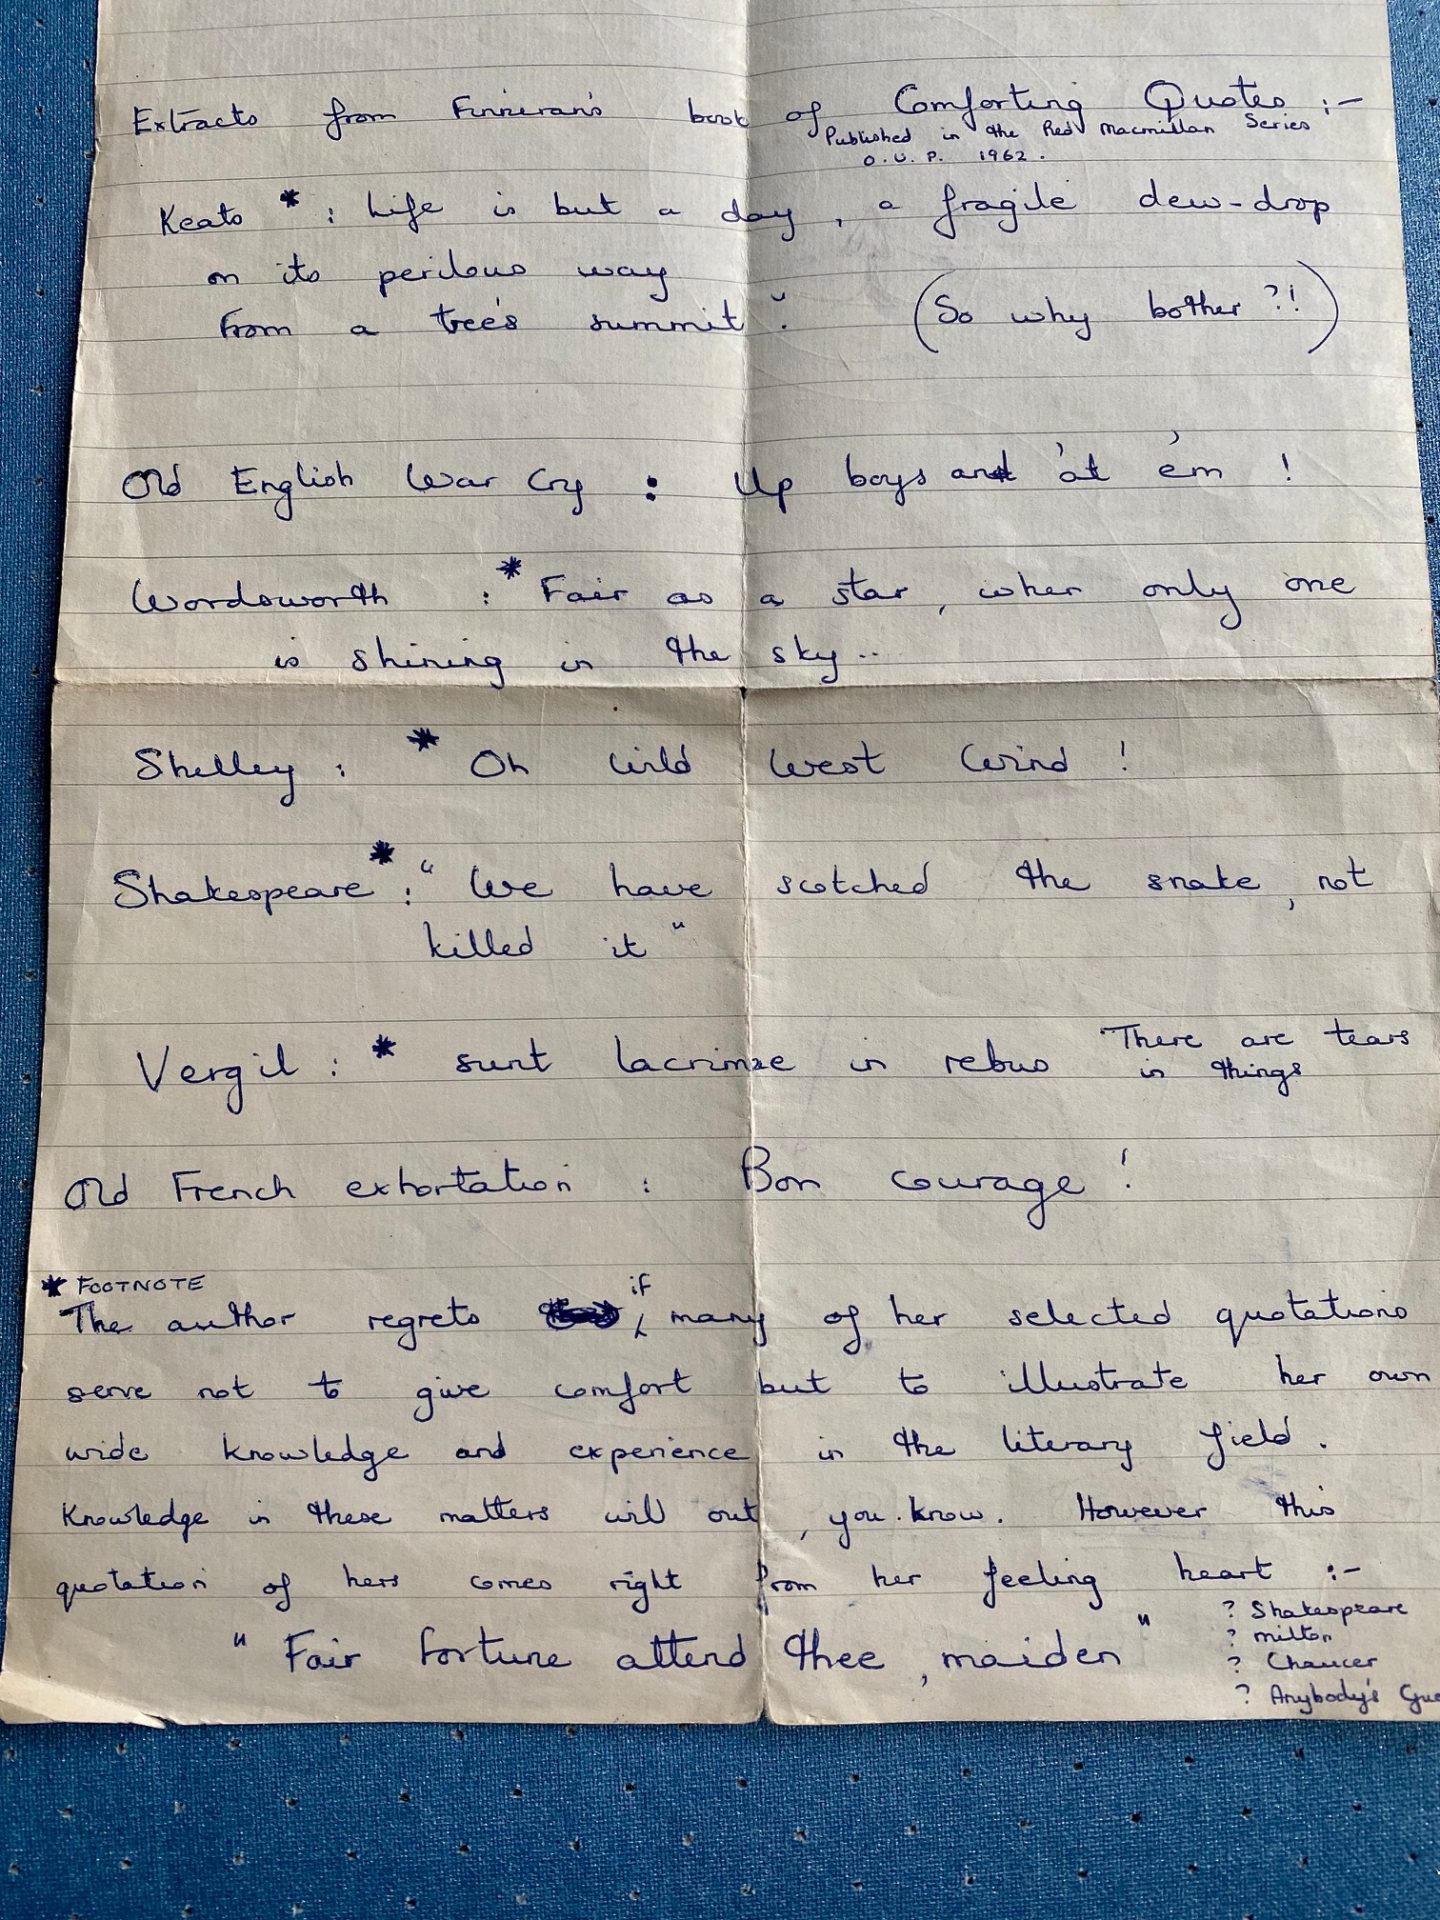 Extracts from Finneran's book of Comforting Quotes :-
Published in the Red Macmillan Series
O.U.P. 1962.
Keats * : Life is but a day, a fragile dew-drop
on its perilous way
From a tree's summit". (So why bother?!)
Old English War Cry : Up boys and 'at 'em !
Wordsworth : * Fair as a star, when only one
is shining in the sky..
Shelley : * Oh Wild West Wind !
Shakespeare * : "We have scotched the snake, not
killed it"
Vergil : * sunt lacrimae in rebus "There are tears
in things
Old French exhortation : Bon courage !
* FOOTNOTE
The author regrets if many of her selected quotations
serve not to give comfort but to illustrate her own
wide knowledge and experience in the literary field.
Knowledge in these matters will out, you know. However this
quotation of hers comes right from her feeling heart :-
"Fair fortune attend thee, maiden"
? Shakespeare
? Milton
? Chaucer
? Anybody's